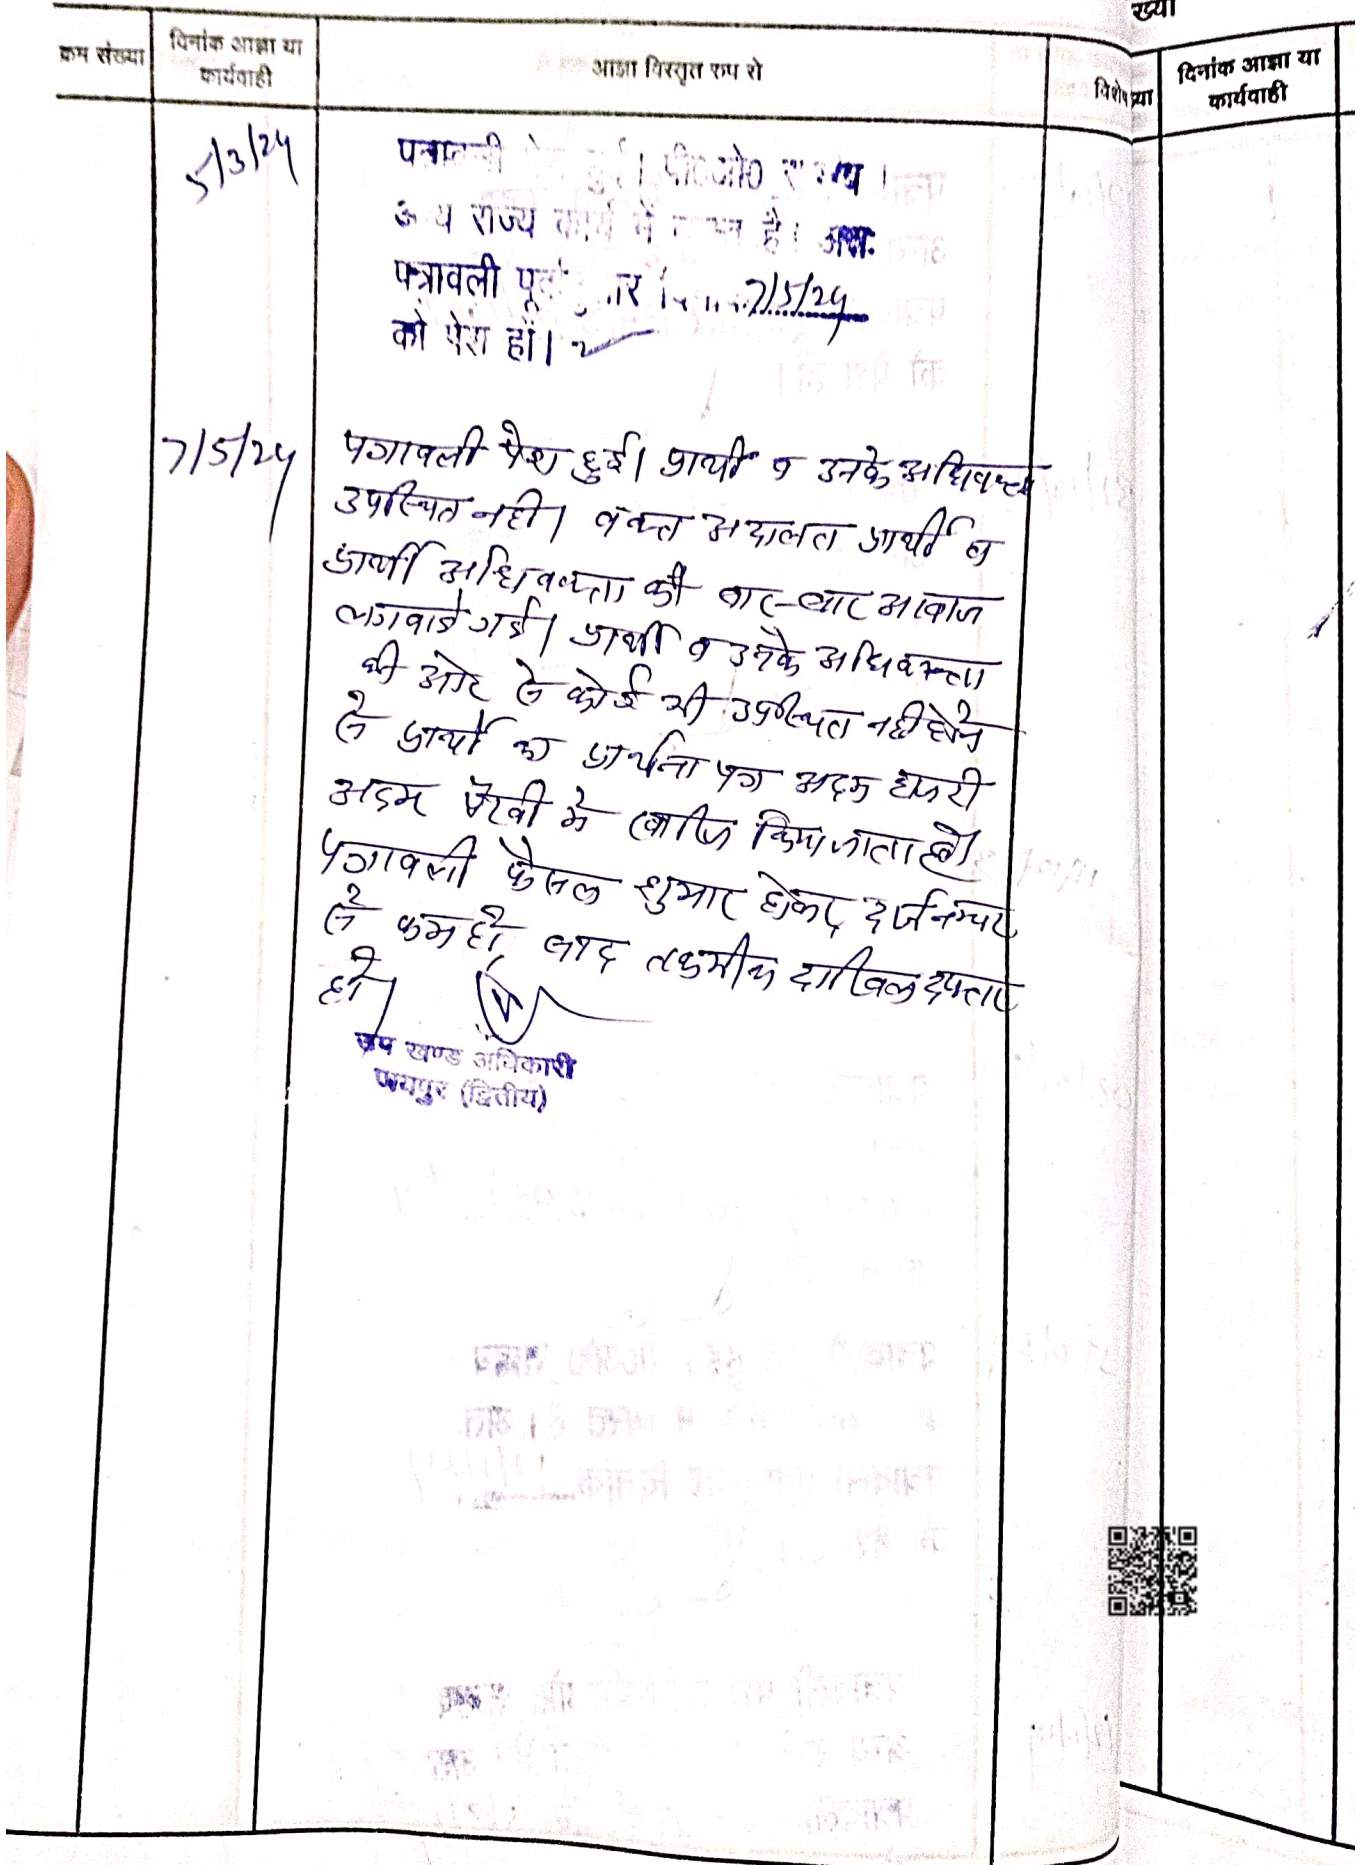 ख्या
क्रम संख्या
दिनांक आज्ञा या
कार्यवाही
आज्ञा विस्तृत रुप से
विशेष
ख्या
दिनांक आज्ञा या
कार्यवाही
5/3/24
पत्रावली हुई। पी०ओ०
अन्य राज्य कार्य में है। अतः
पत्रावली 7/5/24
को पेश हों।
7/5/24
पत्रावली पेश हुई। प्रार्थी व उनके अधिवक्ता
उपस्थित नही। वक्त अदालत प्रार्थी व
प्रार्थी अधिवक्ता को बार-बार आवाज
लगवाई गई। प्रार्थी व उनके अधिवक्ता
की ओर से कोई भी उपस्थित नही होने
से प्रार्थी का प्रार्थना पत्र अदम हाजरी
अदम पैरवी में खारिज किया जाता है।
पत्रावली फैसल शुमार होकर दर्ज नम्बर
से कम हो बाद तकमील दाखिल दफ्तर
हो।
उप खण्ड अधिकारी
जयपुर (द्वितीय)